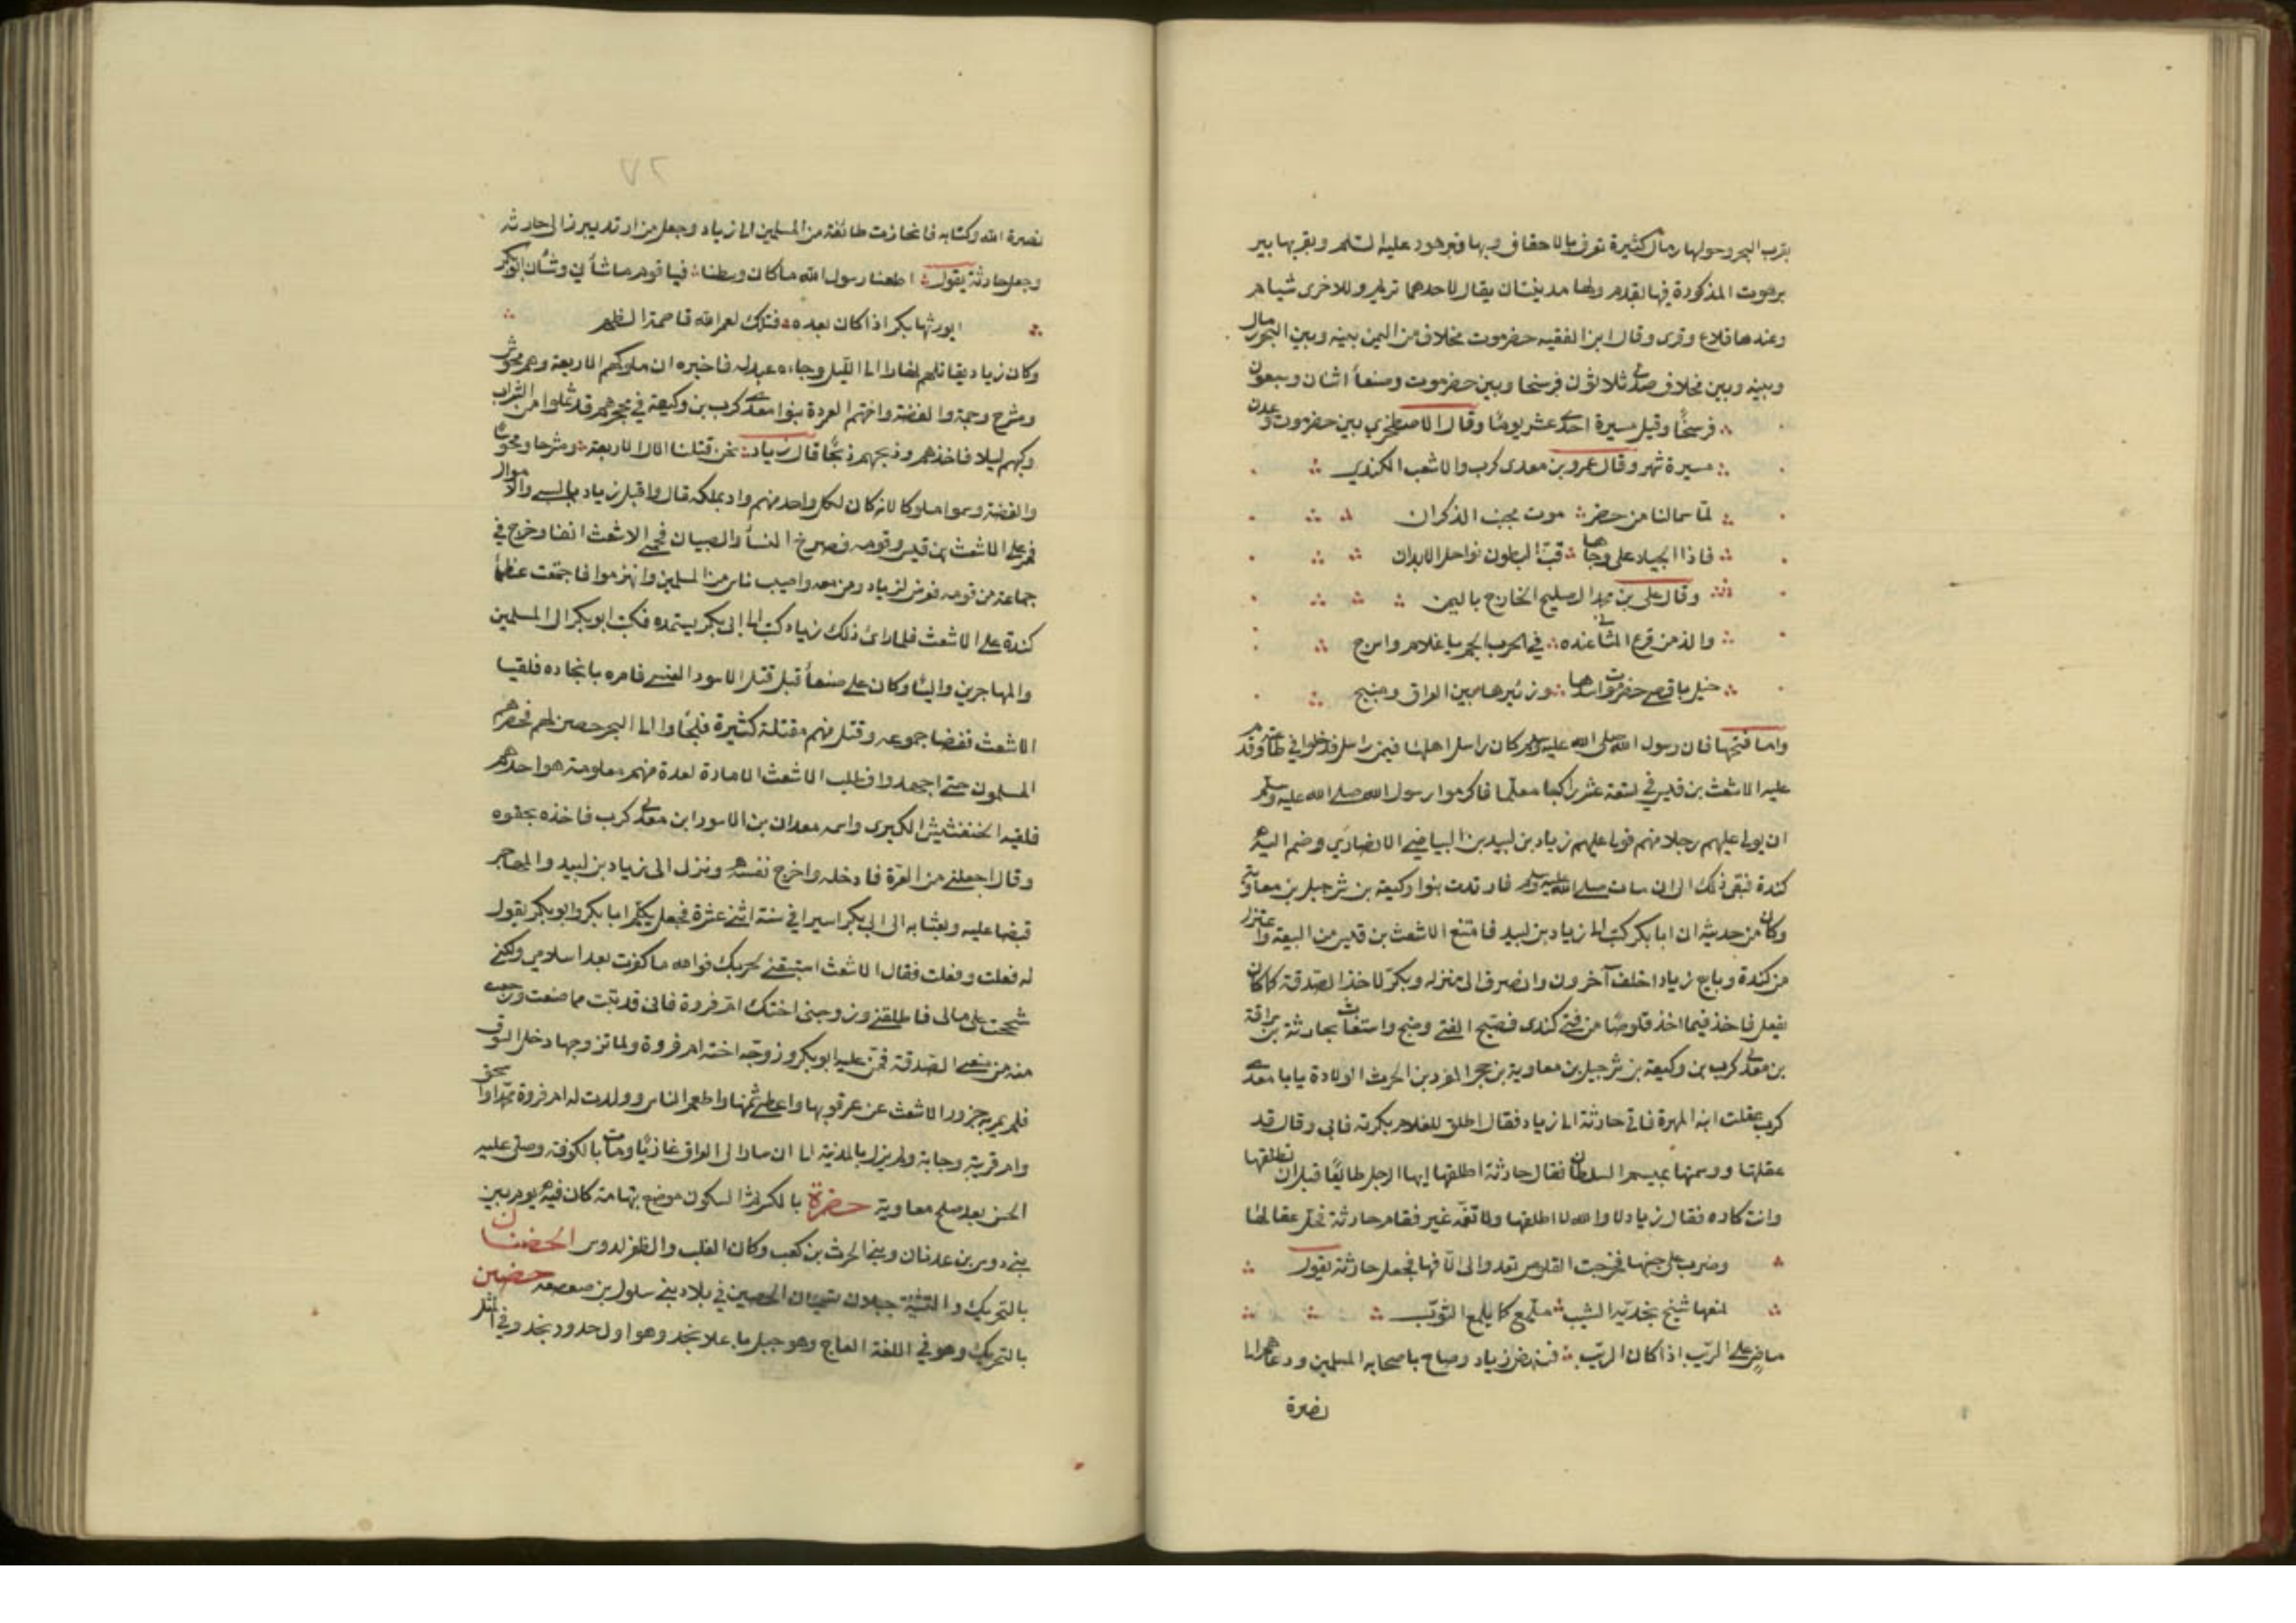 بقرب البحر وحولها رمال كثيرة تعرف بالاحقاف وبها قبر هود عليه السلم وبقربها بير
برهوت المذكورة فيما تقدم ولها مدينتان يقال لاحدهما تريم وللاخرى شبام
وعندها قلاع وقرى وقال ابن الفقيه حضرموت مخلاف من اليمن بينه وبين البحر رمال
وبينه وبين مخلاف صدا ثلاثون فرسخا وبين حضرموت وصنعا اثنان وسبعون
فرسخا وقيل مسيرة احدى عشر يوما وقال الاصطخري بين حضرموت وعدن
مسيرة شهر وقال عمرو بن معدى كرب والاشعب الكندي
لما سمالنا من حضر موت بجنب الذكران
فاذا الجياد على وجاها قب البطون نواحل الابدان
وقال على بن محمد الصليحي الخارج باليمن
والذ من قرع المثاني عنده في الحرب الجم يا غلام واسرج
خيل باقصى حضرموت اسدها وزئيرها بين العراق ومنبج
واما فتحها فان رسول الله صلى الله عليه وسلم كان راسل اهلها فيمن راسل فدخلوا في طاعته وقدم
عليه الاشعث بن قيس في بضعة عشر راكبا مسلما فاكرمه رسول الله صلى الله عليه وسلم
ان يولى عليهم رجلا منهم فولى عليهم زياد بن لبيد بن البياضي الانصاري وضم اليه
كندة فبقى ذلك الى ان مات صلى الله عليه وسلم فارتدت بنوا وكيعة بن شرحبيل بن معاوية
وكان من حديثه ان ابا بكر كتب الى زياد بن لبيد فامتنع الاشعث بن قيس من البيعة واعتزل
من كندة وبايع زيادا خلف آخرون وانصرف الى منزله وبكر لاخذ الصدقة كما كان
يفعل فاخذ فيما اخذ قلوصا من فتى كندى فصيح الفتى وضج واستغاث بحارثة بن سراقة
بن معدى كرب بن وكيعة بن شرحبيل بن معاوية بن حجر الفرد بن الحرث الولادة يابا معدى
كرب عقلت ابنة المهرة فاتى حارثة الى زياد فقال اطلق للغلام بكرته فابى وقال قد
عقلتها ووسمتها بميسم السلطان فقال حارثة اطلقها ايها الرجل طايعا قبل ان تطلقها
وانت كاره فقال زياد لا والله لا اطلقها ولا نعمة غير فقام حارثة فحل عقالها
وضرب على جنبها فخرجت القلوص تعدو الى الافها فجعل حارثة يقول
يمنعها شيخ بخديه الشيب ملمع كما يلمع الثوب
ماض على الريب اذا كان الريب فنهض زياد وصاح باصحابه المسلمين ودعاهم الى
نصرة
نصرة الله وكتابه فانحازت طائفة من المسلمين الى زياد وجعل من ارتد يبرز الى حارثة
وجعل حارثة يقول اطعنا رسول الله ما كان وسطنا فيا قوم ما شأني وشأن ابي بكر
ايورثها بكر اذا كان بعده فتلك لعمر الله قاصمة الظهر
وكان زياد يقاتلهم نهارا الى الليل وجاءه عبد له فاخبره ان ملوكهم الاربعة وهم مخوس
ومشرح وجمد وابضعة واختهم العردة بنوا معدى كرب بن وكيعة في محجرهم قد ثملوا من الشراب
وكبهم ليلا فاخذهم وذبحهم ذبحا قال زياد نحن قتلنا الاملاك الاربعة ومشرحا ومخوسا
والفضة وسموا ملوكا لانه كان لكل واحد منهم واد يملكه قال واقبل زياد بالسبى والاموال
فمر على الاشعث بن قيس وقومه فصرخ النسا والصبيان فحمى الاشعث انفا وخرج في
جماعة من قومه فعرض لزياد ومن معه واصيب ناس من المسلمين وانهزموا فاجتمعت عظما
كندة على الاشعث فلما راى ذلك زياد كتب الى ابى بكر يستمده فكتب ابو بكر الى المسلمين
والمهاجرين واليا وكان على صنعا قبل قتل الاسود العنسى فامره بانجاده فلقيا
الاشعث ففضا جموعه وقتل منهم مقتلة كثيرة فلجاوا الى البحر حصن لهم فحصرهم
المسلمون حتى اجهدوا فطلب الاشعث الامان لعدة منهم معلومة هو احدهم
فلقيه الخنفشيش الكبرى واسمه معدان بن الاسود ابن معدى كرب فاخذه بحقوه
وقال اجعلنى من العدة فادخله واخرج نفسه ونزل الى زياد بن لبيد والمهاجر
قبضا عليه وبعثا به الى ابى بكر اسيرا في سنة اثنى عشرة فجعل يكلم ابا بكر وابو بكر يقول
له فعلت وفعلت فقال الاشعث استبقنى لحربك فوالله ما كفرت بعد اسلامي ولكنى
شححت على مالى فاطلقنى وزوجنى اختك ام فروة فانى قد تبت مما صنعت ورجعت
منه من منعى الصدقة فمن عليه ابو بكر وزوجه اخته ام فروة ولما تزوجها دخل السوق
فلم يمر به جزور الا شعث عن عرقوبها واعطى ثمنها واطعم الناس وولدت له ام فروة محمدا واسحق
وام قريبة وحبابة ولم يزل بالمدينة الى ان سار الى العراق غازيا ومات بالكوفة وصلى عليه
الحسن بعد صلح معاوية حضرة بالكسر ثم السكون موضع بتهامة كان فيه يوم بين
بنى دوس بن عدنان وبنى الحرث بن كعب وكان الغلب والظفر لدوس الحضنان
بالتحريك والتثنية جبلان يسميان الحضنين في بلاد بنى سلول بن صعصعة حضين
بالتحريك وهو في اللغة العاج وهو جبل باعلا نجد وهو اول حدود نجد وفي المثل